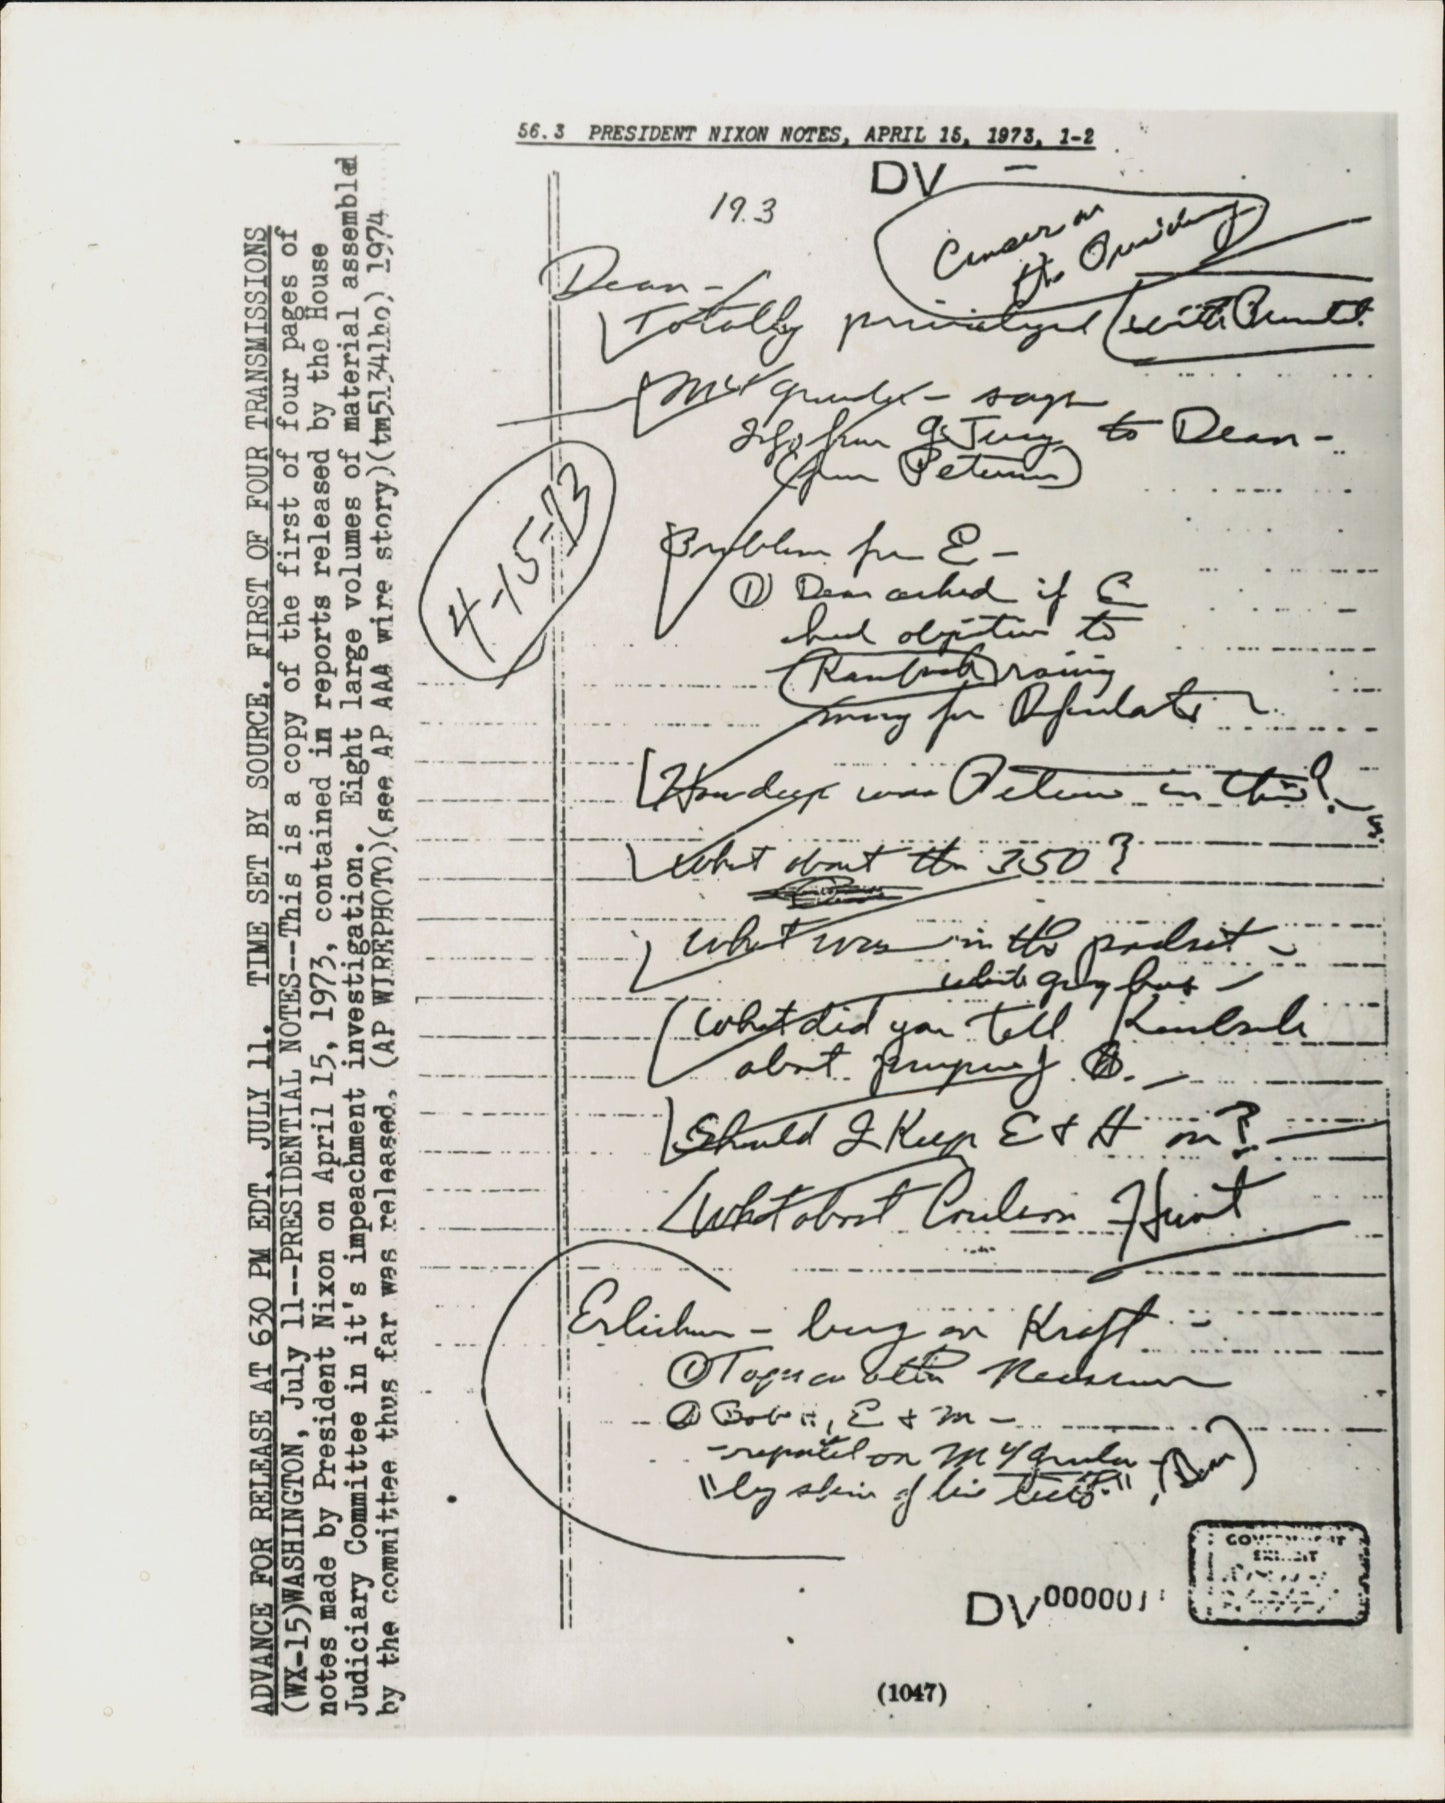 ADVANCE FOR RELEASE AT 630 PM EDT, JULY 11. TIME SET BY SOURCE. FIRST OF FOUR TRANSMISSIONS
(WX-15)WASHINGTON, July 11--PRESIDENTIAL NOTES--This is a copy of the first of four pages of
notes made by President Nixon on April 15, 1973, contained in reports released by the House
Judiciary Committee in it's impeachment investigation. Eight large volumes of material assembled
by the committee thus far was released. (AP WIREPHOTO)(see AP AAA wire story)(tm51341ho) 1974
56.3 PRESIDENT NIXON NOTES, APRIL 15, 1973, 1-2
DV -
19.3
Cancer on
the Presidency
Dean -
Totally privileged with
McGruder - says
Info from G. Jury to Dean -
(from Petersen)
4-15-73
Problem for E -
① Dean asked if E
had objection to
Kalmbach raising
money for Defendants
How deep was Petersen in this?
What about the 350?
What was in the packet -
What did you tell Kalmbach
about purpose of
Should I Keep E & H on?
What about Coulson Hunt
Erlichman - bug on Kraft -
① Taps on other Newsmen
② Bob H, E & M -
- reported on McGruder -
"by skin of his teeth" (Dean)
GOVERNMENT
EXHIBIT
DV 000001
(1047)